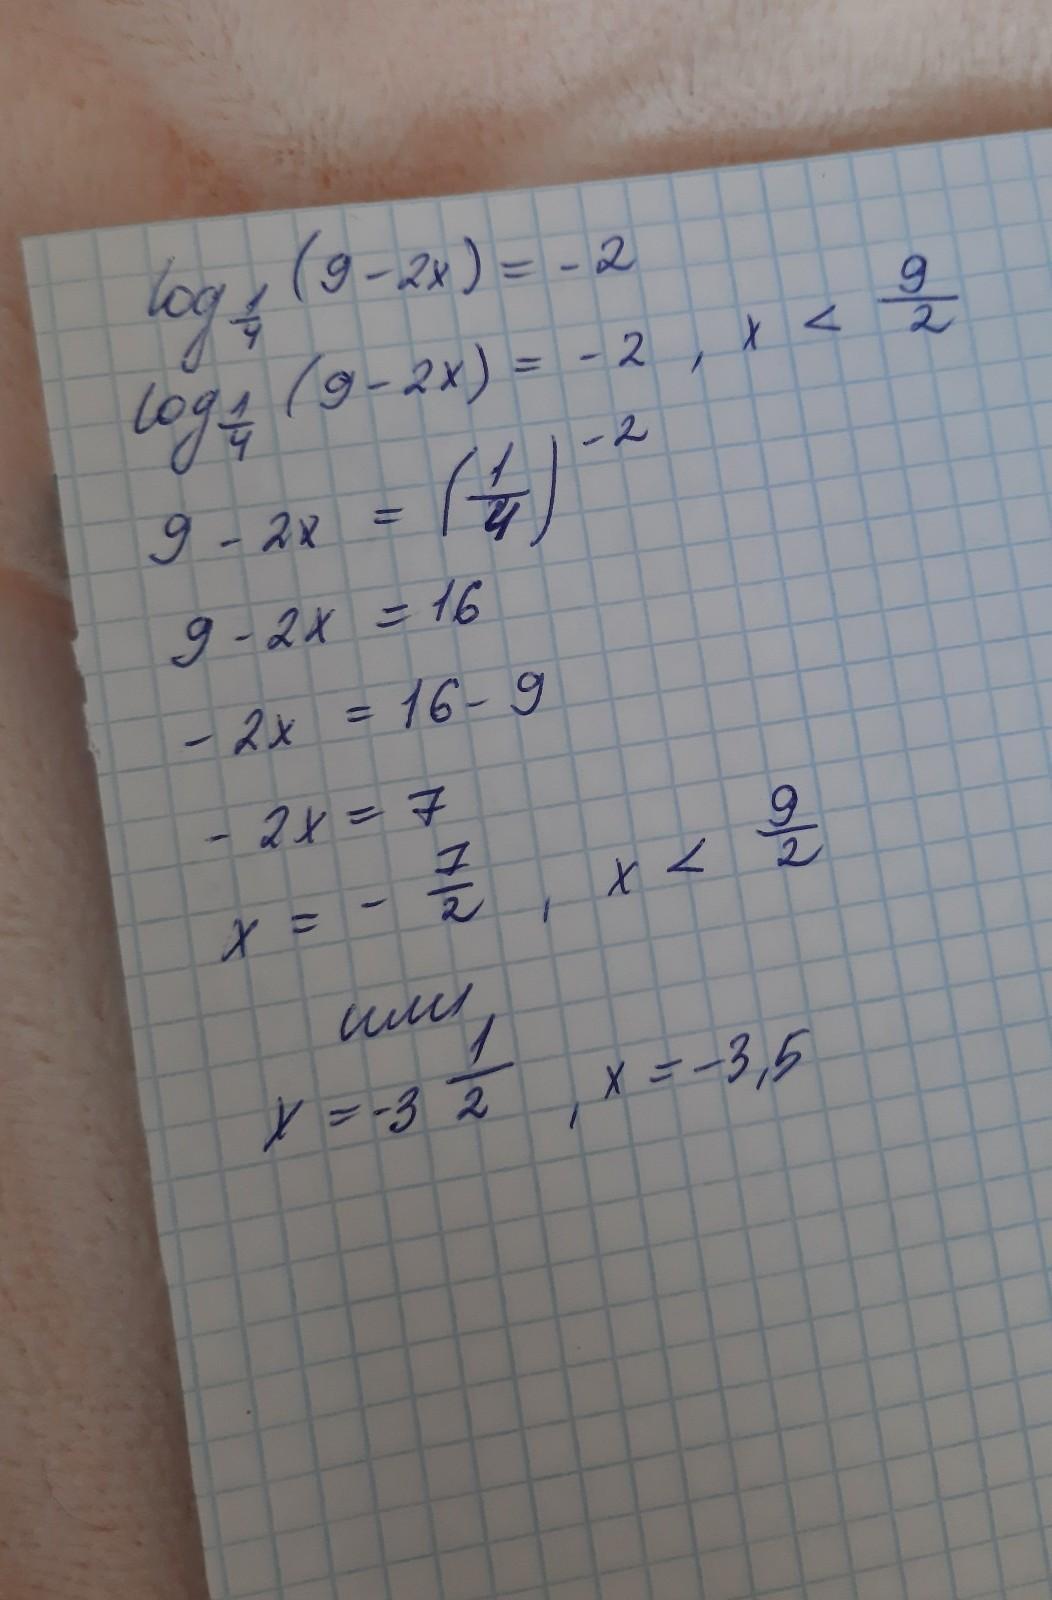 log_{1/4} (9 - 2x) = -2
log_{1/4} (9 - 2x) = -2 , x < 9/2
9 - 2x = (1/4)^{-2}
9 - 2x = 16
- 2x = 16 - 9
- 2x = 7
x = - 7/2 , x < 9/2
или
x = -3 1/2 , x = -3,5